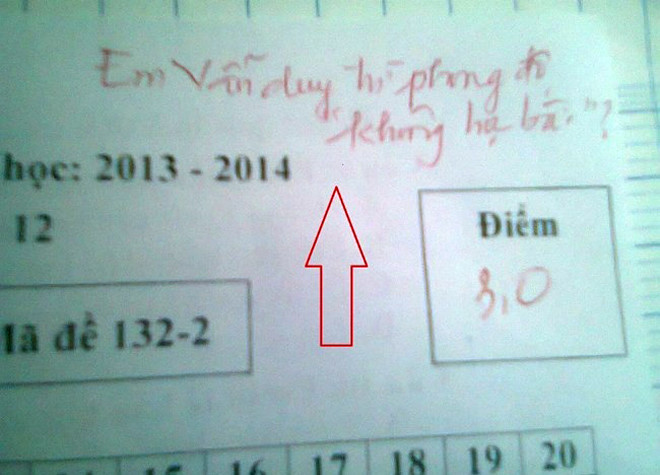 Em Vẫn duy trì phong độ
"không hạ bá..."?
học: 2013 - 2014
12
Điểm
3,0
Mã đề 132-2
16 17 18 19 20